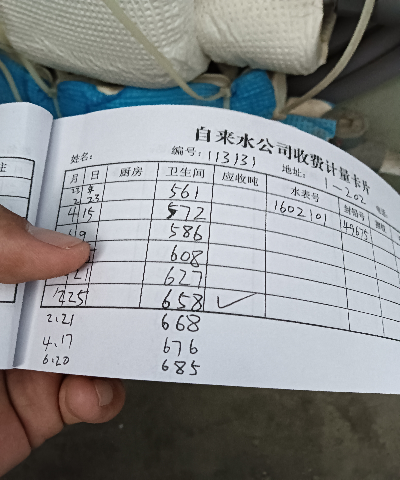 自来水公司收费计量卡片
姓名: 编号: 113131 地址: 1-202
月 日 厨房 卫生间 应收吨 水表号 封铅号
23年
2 23 561 1602101 49675
4 15 572
19 586
608
21 627
12 25 658 ✓
2.21 668
4.17 676
6.20 685